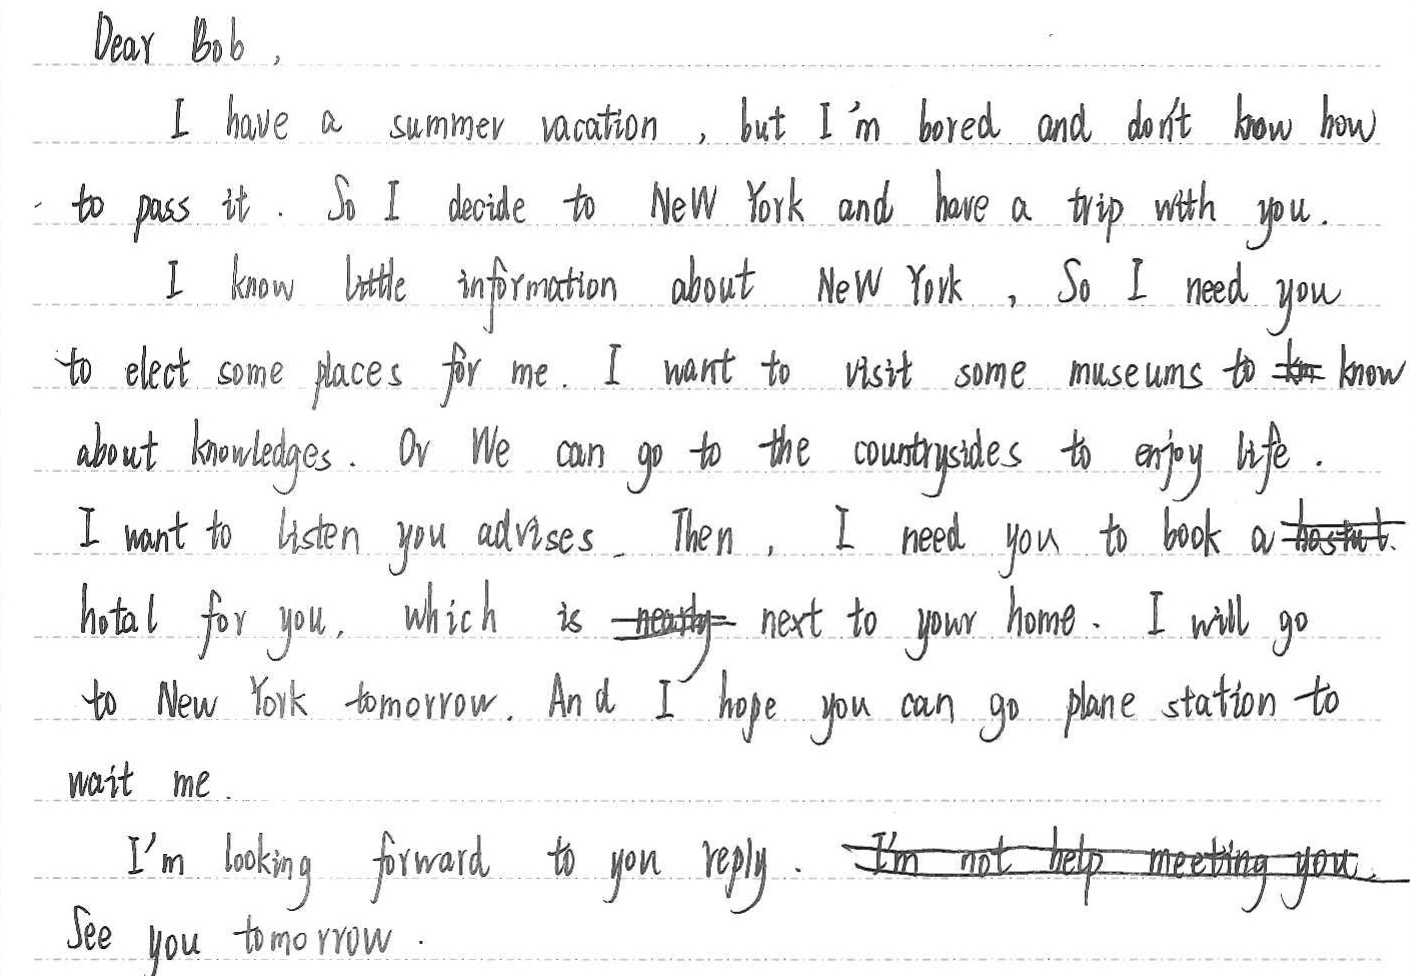 Dear Bob,
I have a summer vacation, but I'm bored and don't know how
to pass it. So I decide to NeW York and have a trip with you.
I know little information about NeW York, So I need you
to elect some places for me. I want to visit some museums to know
about knowledges. Or We can go to the countrysides to enjoy life.
I want to listen you advises. Then, I need you to book a
hotal for you, which is next to your home. I will go
to New York tomorrow. And I hope you can go plane station to
wait me.
I'm looking forward to you reply. I'm not help meeting you.
See you tomorrow.